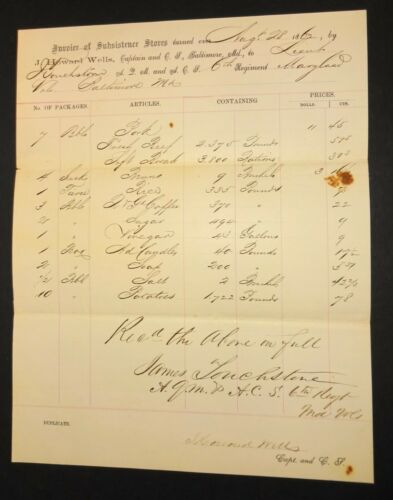 Invoice of Subsistence Stores turned over Augt 28 1862, by
J. Howard Wells, Captain and C. S., Baltimore, Md., to Lieut
J Touchstone A. Q. M. and A. C. S. 6th Regiment Maryland
Vols Baltimore Md
No. OF PACKAGES. ARTICLES. CONTAINING PRICES.
DOLLS. CTS.
7 Bbls Pork 11 45
Fresh Beef 2375 Pounds
Soft Bread 3800 Rations
4 Sacks Beans 9 Bushels 3
1 Tierce Rice 335 Pounds 7
3 Bbls Coffee 370 " 22
2 " Sugar 494 " 9
1 " Vinegar 43 Gallons 9
1 Box Ad Candles 40 Pounds
2 " Soap 200 "
1/2 Bbl Salt 2 Bushels
10 " Potatoes 1722 Pounds 78
Recd the above in full
James Touchstone
A. Q. M. & A. C. S. 6th Regt
Md Vols
DUPLICATE.
J Howard Wells
Capt. and C. S.